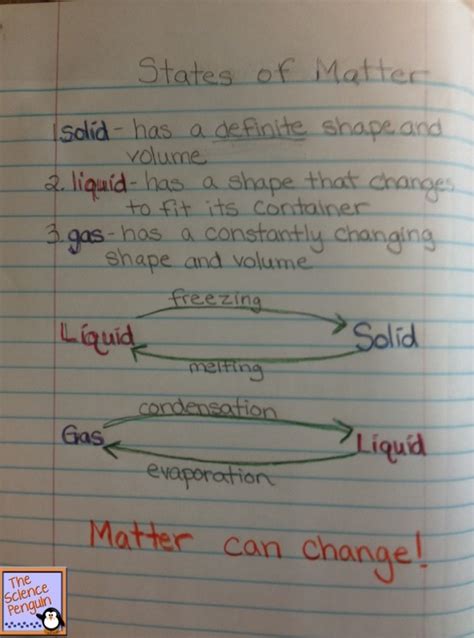 States of Matter
1. solid - has a definite shape and
volume
2. liquid - has a shape that changes
to fit its container
3. gas - has a constantly changing
shape and volume
freezing
Liquid Solid
melting
condensation
Gas Liquid
evaporation
Matter can change!
The
Science
Penguin